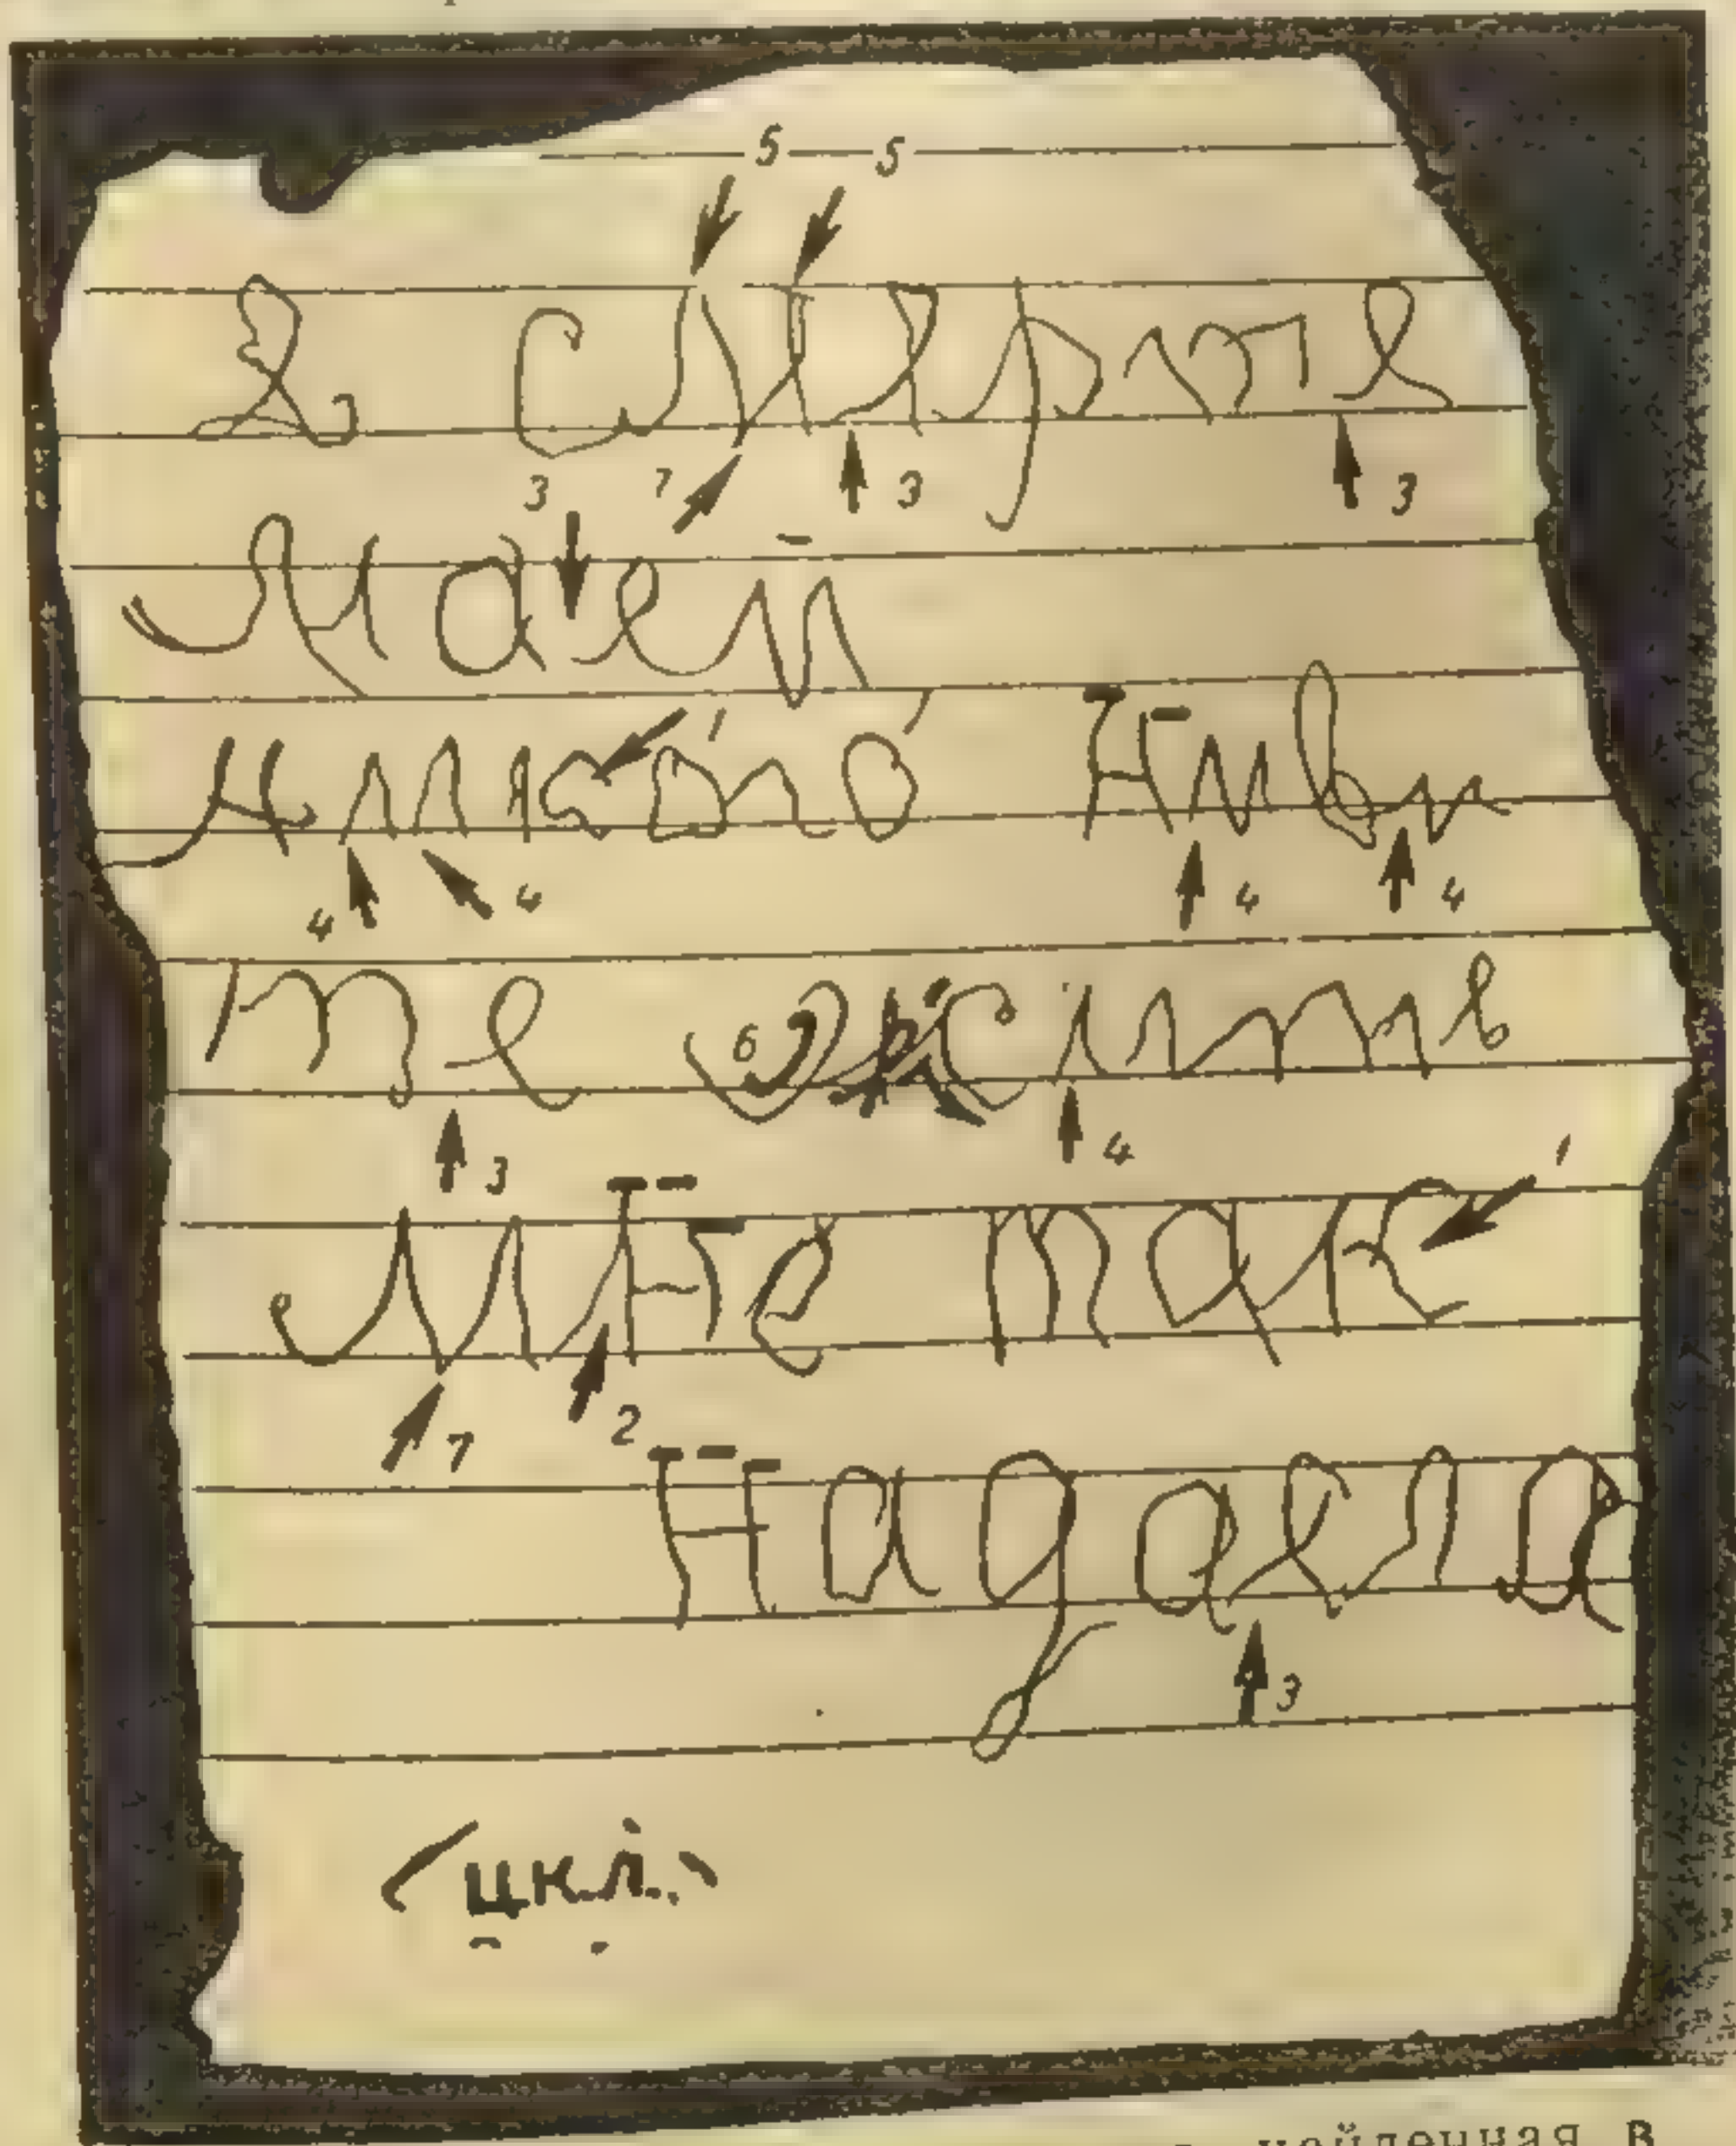 5 5
В смерте
3 7 3 3
маей
1
никого Ниви
4 4 4 4
те жить
6
3 4
1
мне так
7 2
Надаела
3
найденная в